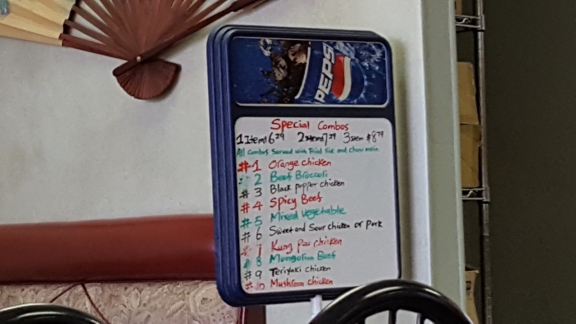 PEPSI
Special Combos
1 Item $6.29 2 Item $7.29 3 Item $8.79
All Combos Served with Fried Rice and Chow mein
#1 Orange chicken
# 2 Beef Broccoli
# 3 Black pepper chicken
# 4 Spicy Beef
# 5 Mixed Vegetable
# 6 Sweet and Sour chicken or Pork
# 7 Kung Pao chicken
# 8 Mongolian Beef
# 9 Teriyaki chicken
#10 Mushroom chicken